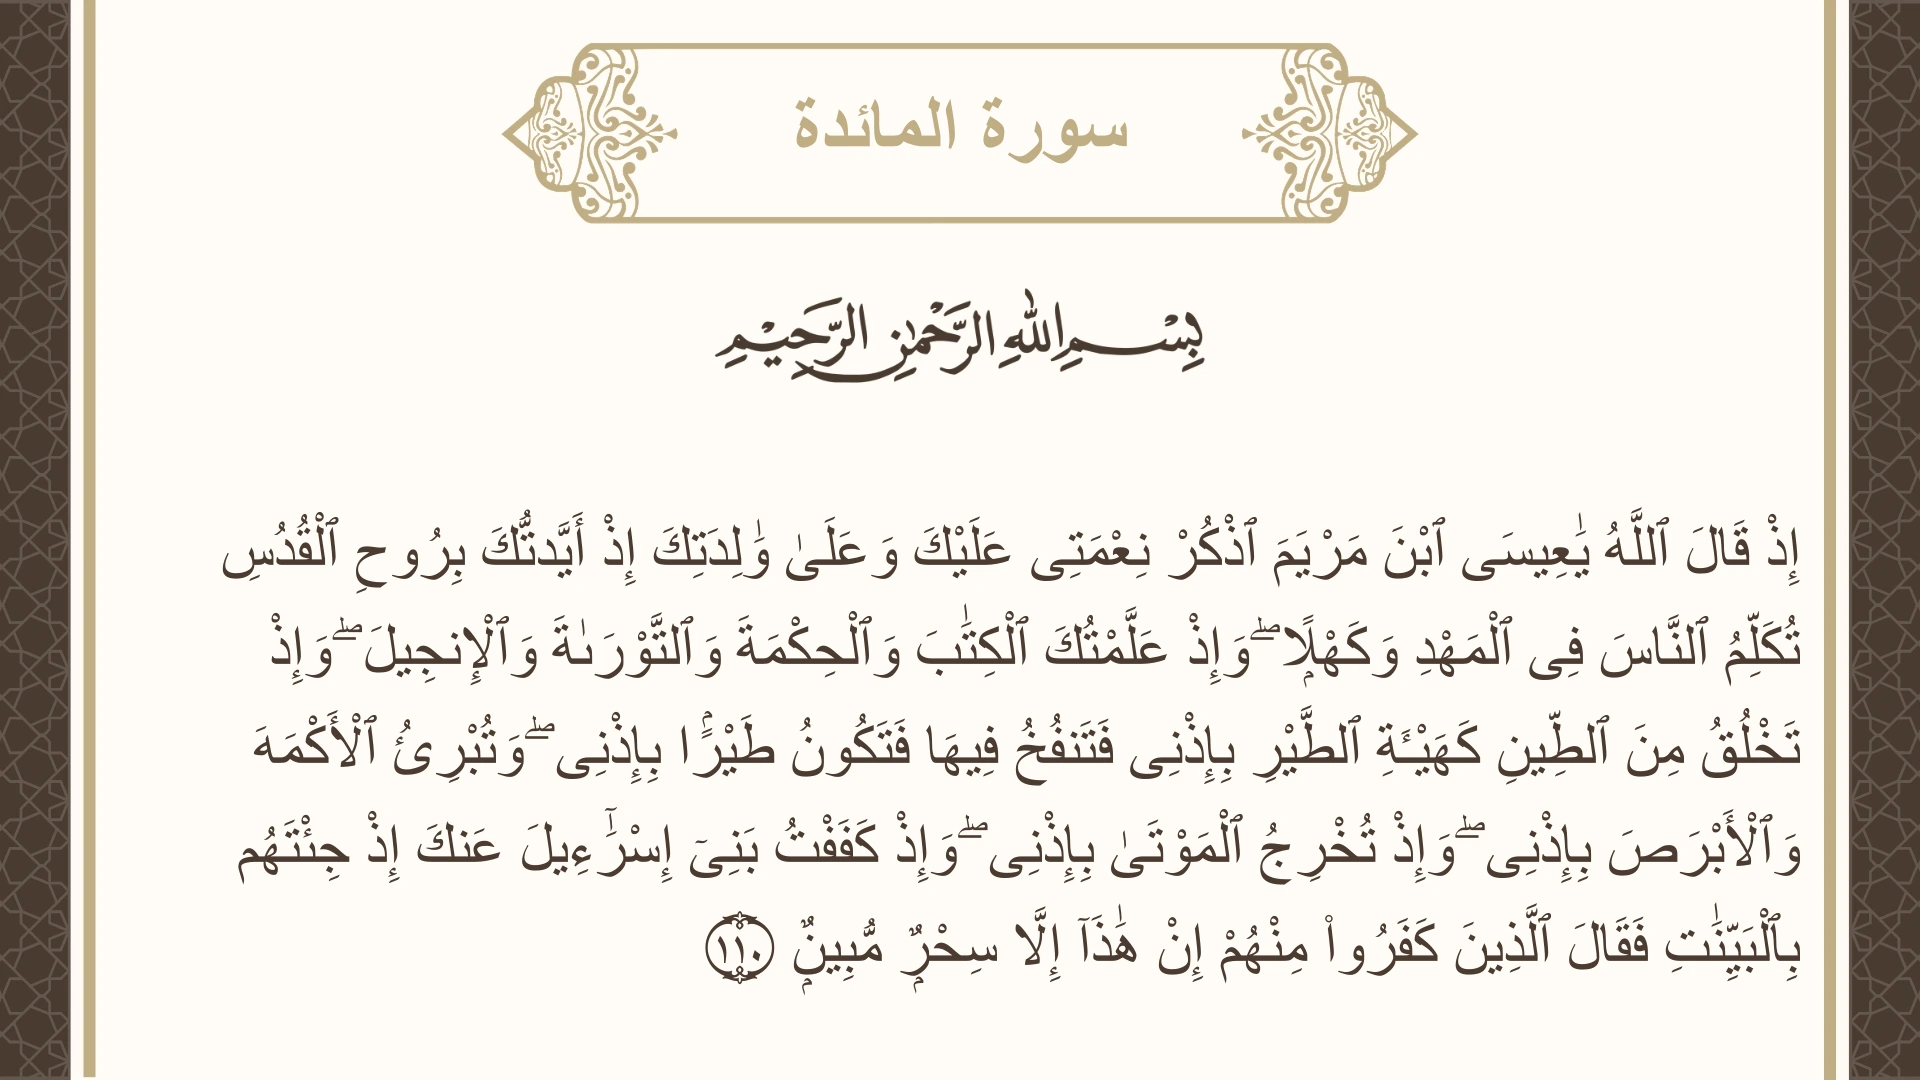 سورة المائدة
بِسْمِ اللهِ الرَّحْمٰنِ الرَّحِيْمِ
إِذْ قَالَ ٱللَّهُ يَٰعِيسَى ٱبْنَ مَرْيَمَ ٱذْكُرْ نِعْمَتِى عَلَيْكَ وَعَلَىٰ وَٰلِدَتِكَ إِذْ أَيَّدتُّكَ بِرُوحِ ٱلْقُدُسِ
تُكَلِّمُ ٱلنَّاسَ فِى ٱلْمَهْدِ وَكَهْلًۭا ۖ وَإِذْ عَلَّمْتُكَ ٱلْكِتَٰبَ وَٱلْحِكْمَةَ وَٱلتَّوْرَىٰةَ وَٱلْإِنجِيلَ ۖ وَإِذْ
تَخْلُقُ مِنَ ٱلطِّينِ كَهَيْـَٔةِ ٱلطَّيْرِ بِإِذْنِى فَتَنفُخُ فِيهَا فَتَكُونُ طَيْرًۢا بِإِذْنِى ۖ وَتُبْرِئُ ٱلْأَكْمَهَ
وَٱلْأَبْرَصَ بِإِذْنِى ۖ وَإِذْ تُخْرِجُ ٱلْمَوْتَىٰ بِإِذْنِى ۖ وَإِذْ كَفَفْتُ بَنِىٓ إِسْرَٰٓءِيلَ عَنكَ إِذْ جِئْتَهُم
بِٱلْبَيِّنَٰتِ فَقَالَ ٱلَّذِينَ كَفَرُوا۟ مِنْهُمْ إِنْ هَٰذَآ إِلَّا سِحْرٌۭ مُّبِينٌۭ ١١٠